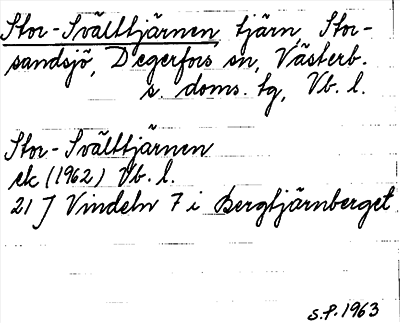 Stor-Svälttjärnen, tjärn, Stor-
sandsjö, Degerfors sn, Västerb.
s. doms. tg, Vb. l.
Stor-Svälttjärnen
ek (1962) Vb. l.
21 J Vindeln 7 i Bergtjärnberget
S.P. 1963